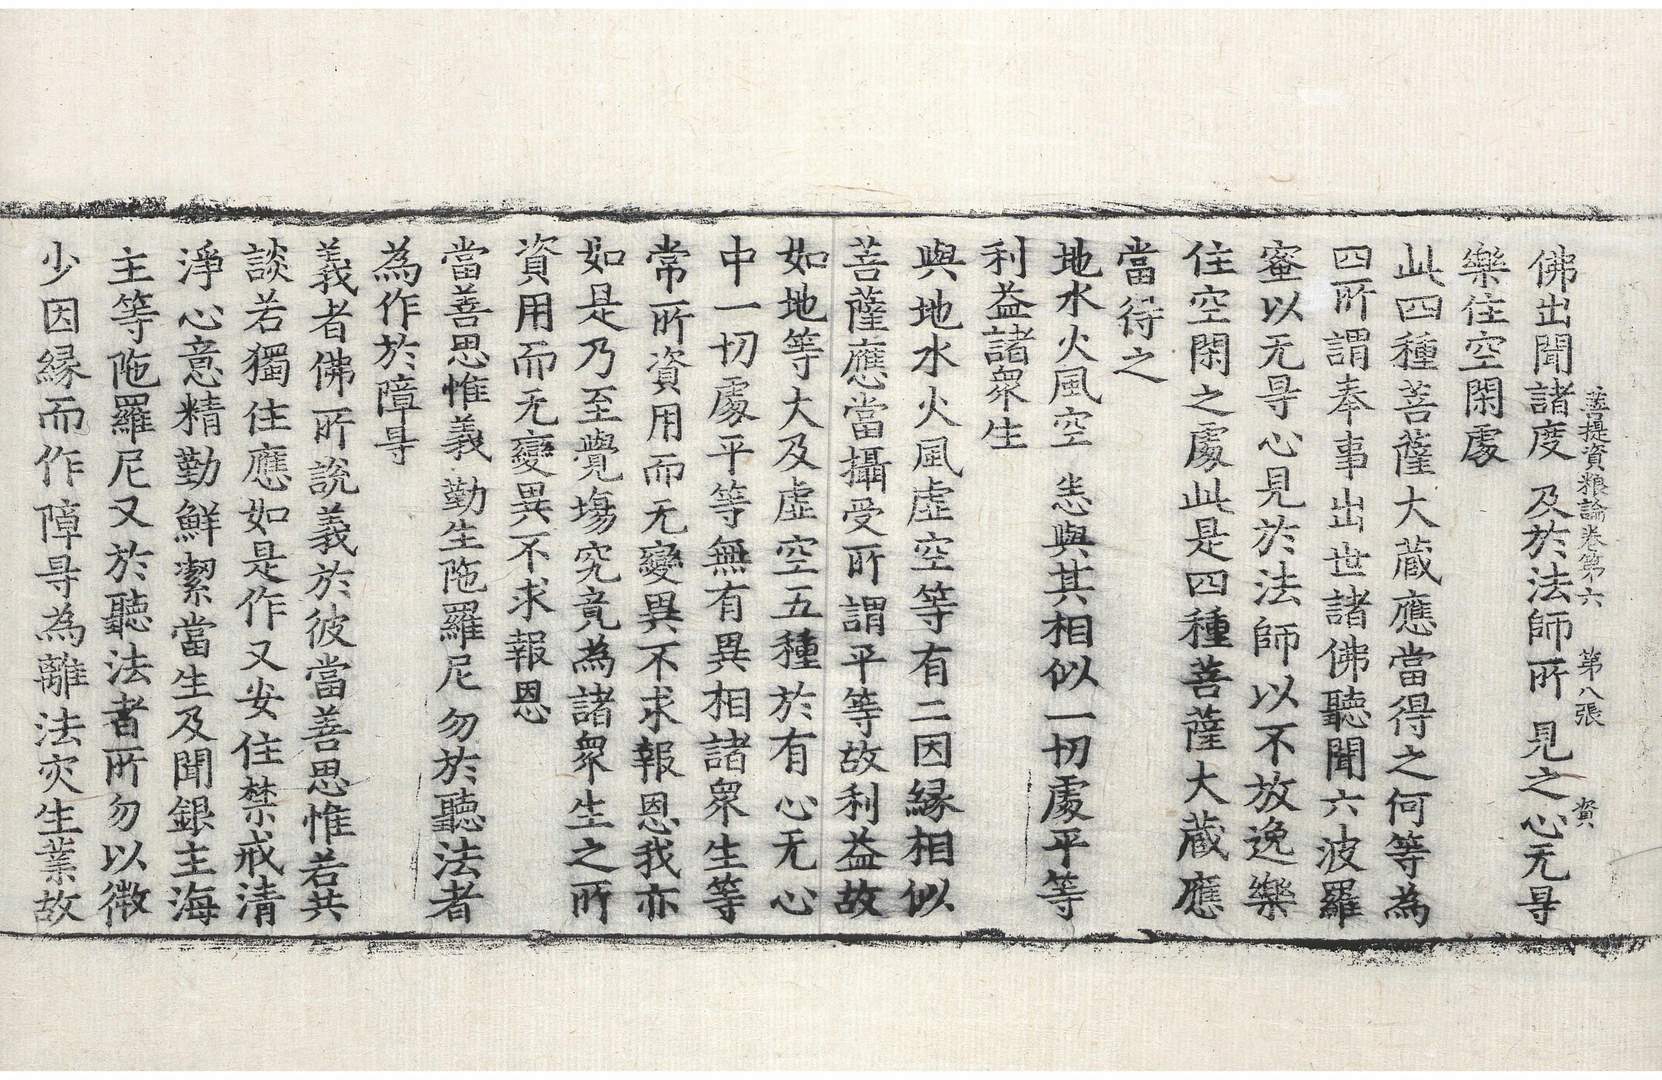 菩提資粮論卷第六　第八張　資
佛出聞諸度　及於法師所　見之心无㝵
樂住空閑處
此四種菩薩大蔵應當得之何等為
四所謂奉事出世諸佛聽聞六波羅
蜜以无㝵心見於法師以不放逸樂
住空閑之處此是四種菩薩大蔵應
當得之
地水火風空　悉與其相似　一切處平等
利益諸衆生
與地水火風虛空等有二因縁相似
菩薩應當攝受所謂平等故利益故
如地等大及虛空五種於有心无心
中一切處平等無有異相諸衆生等
常所資用而无變異不求報恩我亦
如是乃至覺場究竟為諸衆生之所
資用而无變異不求報恩
當善思惟義　勤生陁羅尼　勿於聽法者
為作於障㝵
義者佛所說義於彼當善思惟若共
談若獨住應如是作又安住禁戒清
淨心意精勤鮮潔當生及聞銀主海
主等陁羅尼又於聽法者所勿以微
少因縁而作障㝵為離法灾生業故